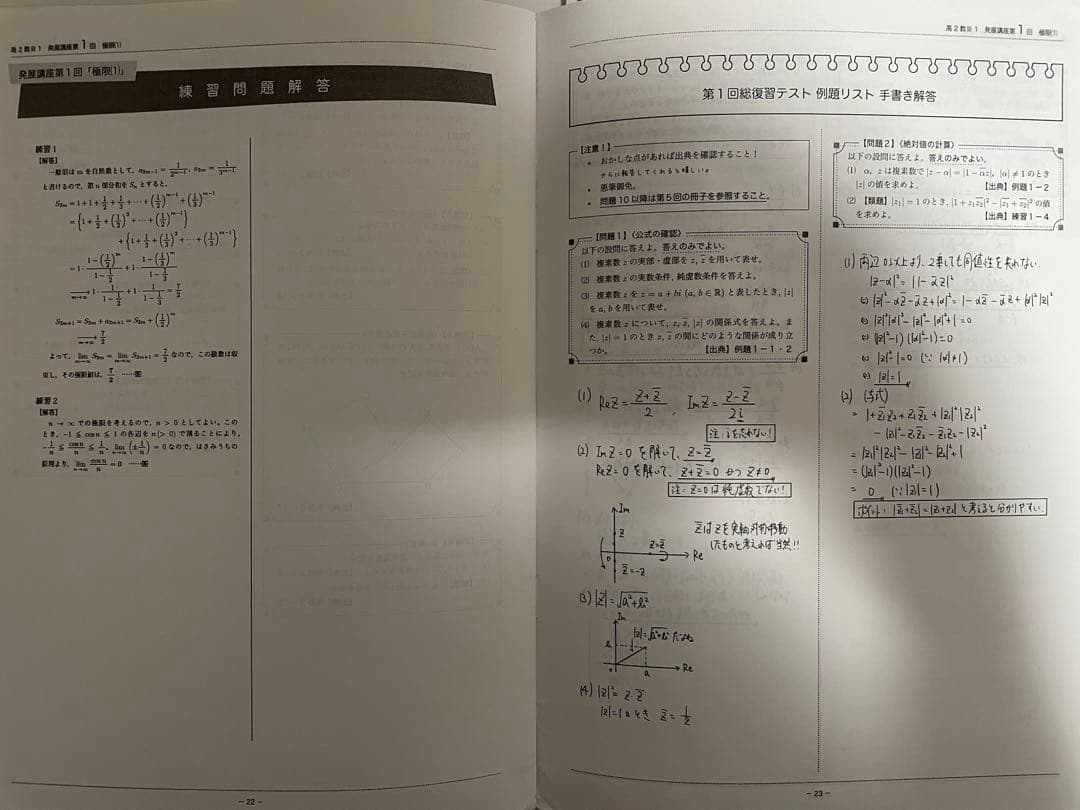 高2数Ⅲ1 発展講座第1回 極限(1)
発展講座第1回「極限(1)」
練習問題解答
練習1
【解答】
一般項は m を自然数として、a_{2m-1} = 1/2^{m-1}, a_{2m} = 1/3^{m-1}
と書けるので、第 n 部分和を S_n とすると、
S_{2m} = 1 + 1 + 1/2 + 1/3 + ⋯ + (1/2)^{m-1} + (1/3)^{m-1}
= {1 + 1/2 + (1/2)^2 + ⋯ + (1/2)^{m-1}}
+ {1 + 1/3 + (1/3)^2 + ⋯ + (1/3)^{m-1}}
= 1・(1-(1/2)^m)/(1-1/2) + 1・(1-(1/3)^m)/(1-1/3)
→(m→∞) 1・1/(1-1/2) + 1・1/(1-1/3) = 7/2
S_{2m+1} = S_{2m} + a_{2m+1} = S_{2m} + (1/2)^m
→(m→∞) 7/2
よって、lim_{m→∞} S_{2m} = lim_{m→∞} S_{2m+1} = 7/2 なので、この級数は収
束し、その極限値は、7/2 ……答
練習2
【解答】
n → ∞ での極限を考えるので、n > 0 としてよい。このと
き、-1 ≦ cos n ≦ 1 の各辺を n(> 0) で割ることにより、
-1/n ≦ cos n/n ≦ 1/n。lim_{n→∞}(±1/n) = 0 なので、はさみうちの
原理より、lim_{n→∞} cos n/n = 0 ……答
- 22 -
高2数Ⅲ1 発展講座第1回 極限(1)
第1回総復習テスト 例題リスト 手書き解答
【注意!】
• おかしな点があれば出典を確認すること!
さらに報告してくれると嬉しい。
• 悪筆御免。
• 問題10以降は第5回の冊子を参照すること。
【問題1】〈公式の確認〉
以下の設問に答えよ。答えのみでよい。
(1) 複素数 z の実部・虚部を z, z̄ を用いて表せ。
(2) 複素数 z の実数条件、純虚数条件を答えよ。
(3) 複素数 z を z = a + bi (a, b ∈ ℝ) と表したとき、|z|
を a, b を用いて表せ。
(4) 複素数 z について、z, z̄, |z| の関係式を答えよ。ま
た、|z| = 1 のとき z, z̄ の間にどのような関係が成り立
つか。 【出典】例題1-1・2
(1) Re z = (z+z̄)/2 , Im z = (z-z̄)/2i
注:iを忘れない!
(2) Im z = 0 を解いて、z = z̄
Re z = 0 を解いて、z + z̄ = 0 かつ z ≠ 0
注:z=0は純虚数でない!
Im
z
z=z̄
Re
0
z̄=-z
z̄はzを実軸対称移動
したものと考えれば当然!!
(3) |z| = √(a²+b²)
Im
|z|=√(a²+b²) だよね
b
0
a
Re
(4) |z|² = z・z̄
|z|=1のとき z̄ = 1/z
【問題2】〈絶対値の計算〉
以下の設問に答えよ。答えのみでよい。
(1) α, z は複素数で |z - α| = |1 - ᾱz|, |α| ≠ 1 のとき
|z| の値を求めよ。 【出典】例題1-2
(2) 【類題】|z₁| = 1 のとき、|1 + z₁z̄₂|² - |z̄₁ + z̄₂|² の値
を求めよ。 【出典】練習1-4
(1) 両辺0以上より、2乗しても同値性を失わない.
|z-α|² = |1-ᾱz|²
⇔ |z|² - αz̄ - ᾱz + |α|² = 1 - αz̄ - ᾱz + |α|²|z|²
⇔ |z|²|α|² - |z|² - |α|² + 1 = 0
⇔ (|z|²-1)(|α|²-1) = 0
⇔ |z|²-1 = 0 (∵ |α|≠1)
⇔ |z| = 1
(2) (与式)
= 1 + z̄₁z₂ + z₁z̄₂ + |z₁|²|z₂|²
- |z₁|² - z₁z̄₂ - z̄₁z₂ - |z₂|²
= |z₁|²|z₂|² - |z₁|² - |z₂|² + 1
= (|z₁|²-1)(|z₂|²-1)
= 0 (∵ |z₁|=1)
ポイント:|z̄₁+z̄₂|=|z₁+z₂| と考えると分かりやすい.
- 23 -